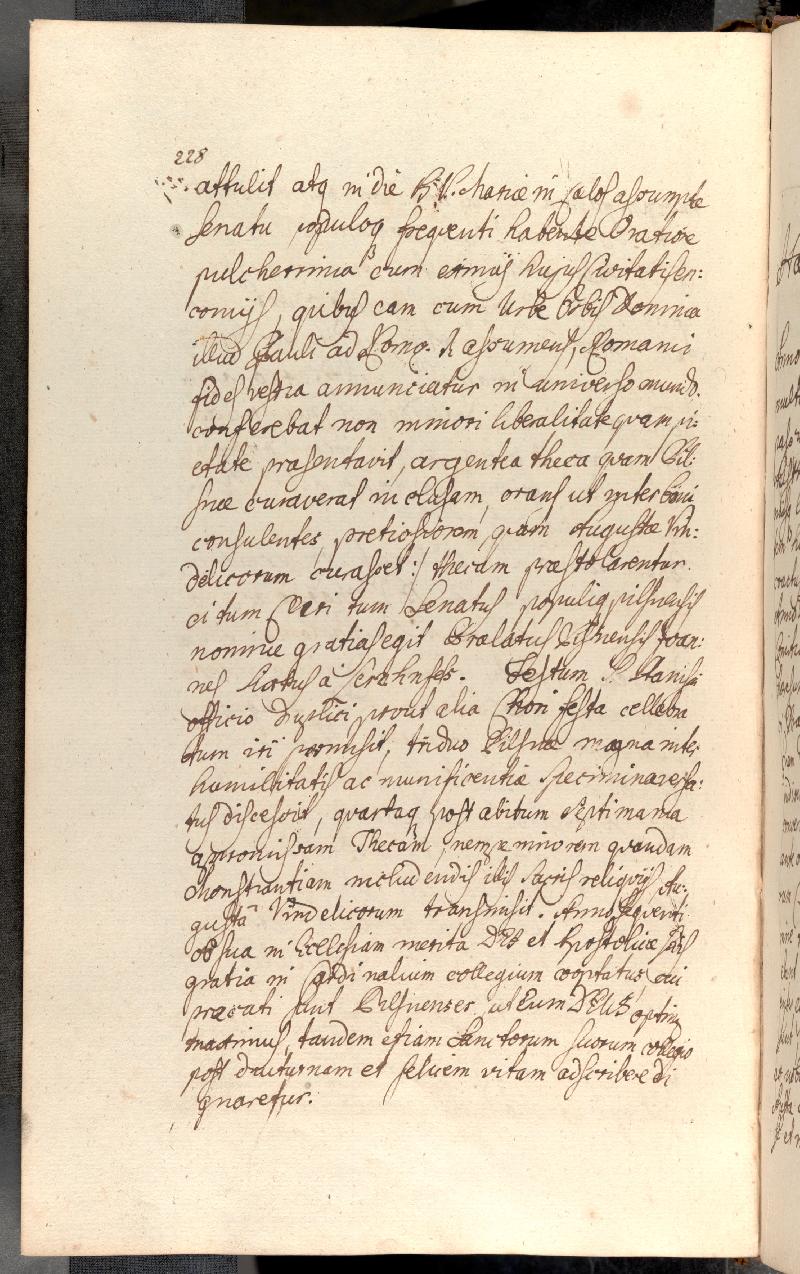 228
attulit atq in die B.V. Mariæ in cælos assumptæ
Senatu populoq frequenti habente Oratione
pulcherrima cum eximijs hujus Civitatis en:
comijs, quibus eam cum Urbe Orbis Domina
illud Pauli ad Romo. 1. assumens, Romani
fides vestra annunciatur in universo mundo.
conferebat non minori liberalitate quam pi:
etate præsentavit, argentea theca quam Pil:
snæ curaverat inclusam, orans ut interea
consulentes, pretiosiorem quam Augustæ Vin:
delicorum curasset :/ thecam præstolarentur.
ei tum Cleri tum Senatus populiq pilsnensis
nomine gratias egit Prælatus Pilsnensis Joan:
nes a . Festum S.
officio duplici prout alia Chori festa celebra
tum iri promisit, triduo Pilsnæ magna inter
humilitatis ac munificentiæ specimina versa:
tus discessit, quartaq post abitum septimana
apromissam Thecam, nempe minorem quandam
Monstrantiam includendis illis sacris reliquijs Au:
gusta Vindelicorum transmisit. Anno sequenti
ob sua in Ecclesiam merita DEI et Apostolicæ sedis
gratia in Cardinalium collegium cooptatus, cui
præcati sunt Pilsnenses, ut Eum DEUS optimus
maximus, tandem etiam Sanctorum suorum collegio
post diuturnam et felicem vitam adscribere di
gnaretur.